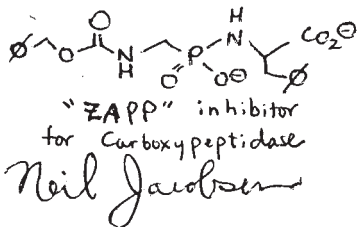 O H
Ø O N P N CO₂⊖
H O O⊖ Ø
"ZAPP" inhibitor
for Carboxypeptidase
Neil Jacobsen